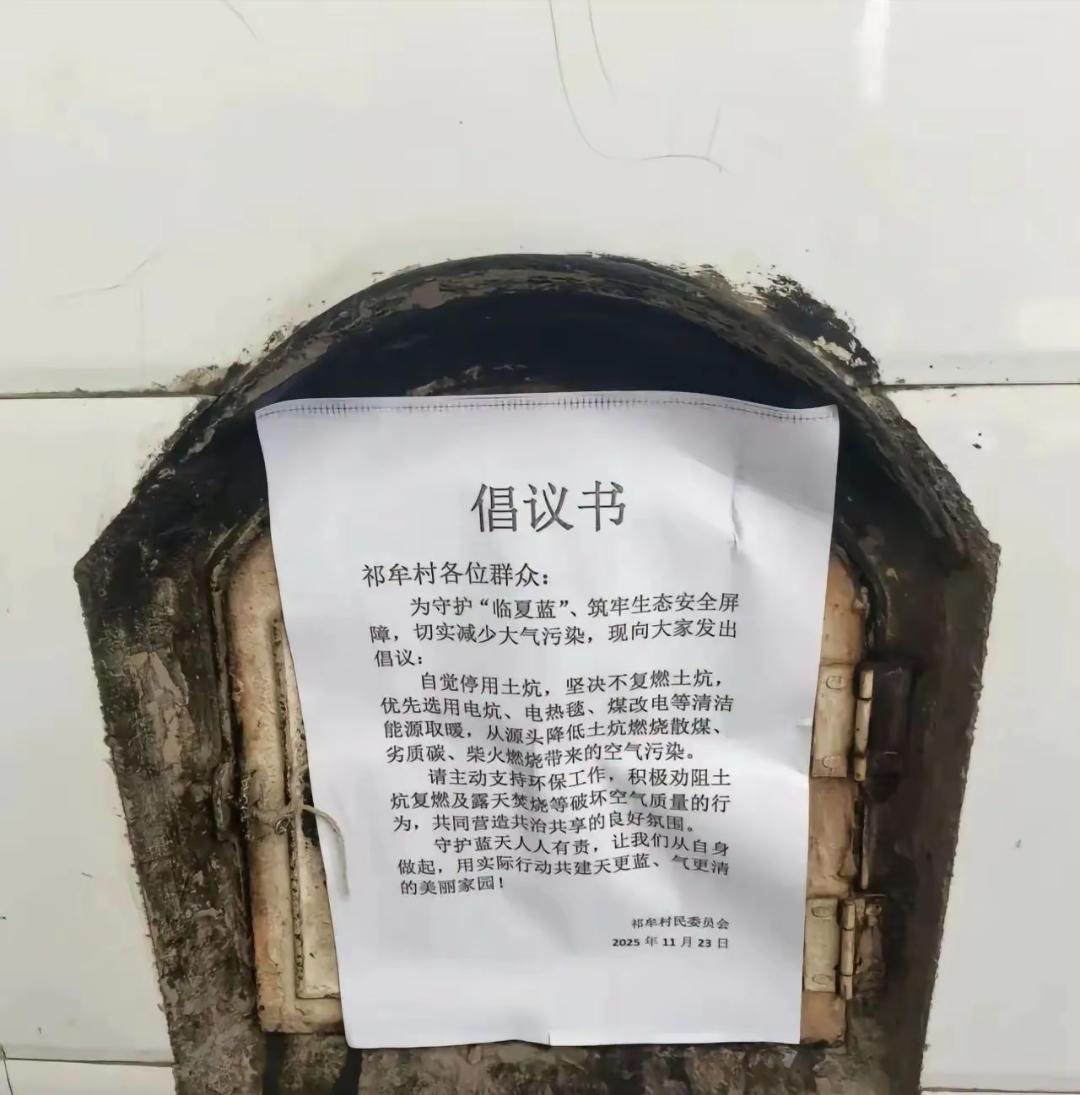 倡议书
祁牟村各位群众：
为守护“临夏蓝”、筑牢生态安全屏
障，切实减少大气污染，现向大家发出
倡议：
自觉停用土炕，坚决不复燃土炕，
优先选用电炕、电热毯、煤改电等清洁
能源取暖，从源头降低土炕燃烧散煤、
劣质碳、柴火燃烧带来的空气污染。
请主动支持环保工作，积极劝阻土
炕复燃及露天焚烧等破坏空气质量的行
为，共同营造共治共享的良好氛围。
守护蓝天人人有责，让我们从自身
做起，用实际行动共建天更蓝、气更清
的美丽家园！
祁牟村民委员会
2025 年 11 月 23 日